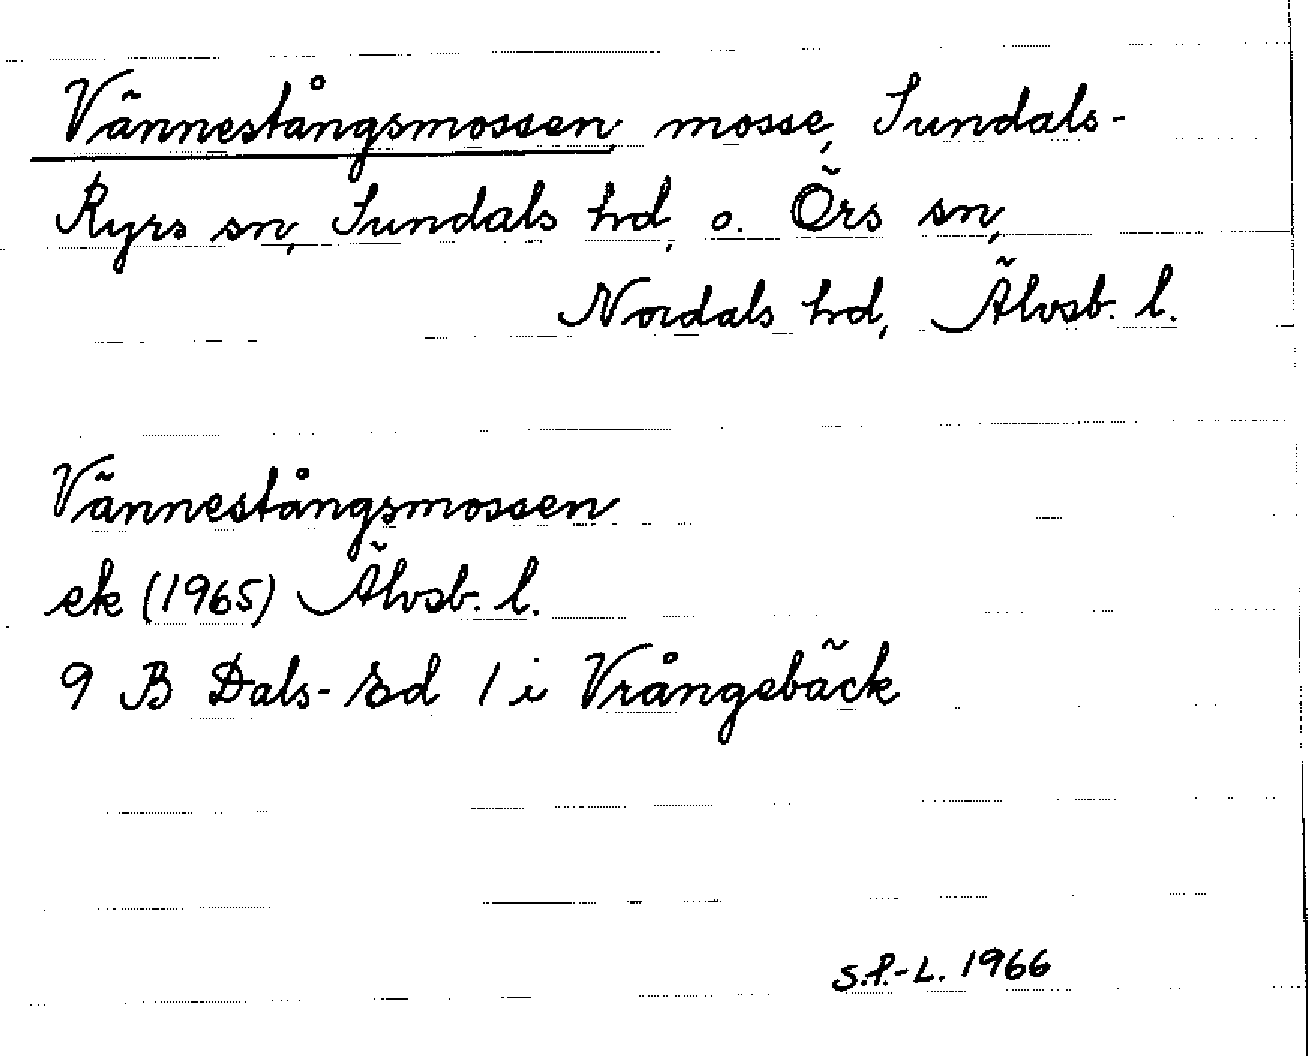 Vännestångsmossen, mosse, Sundals-
Ryrs sn, Sundals hrd, o. Örs sn,
Nordals hrd, Älvsb. l.
Vännestångsmossen
ek (1965) Älvsb. l.
9 B Dals-Ed 1 i Vrångebäck
S.P.-L. 1966